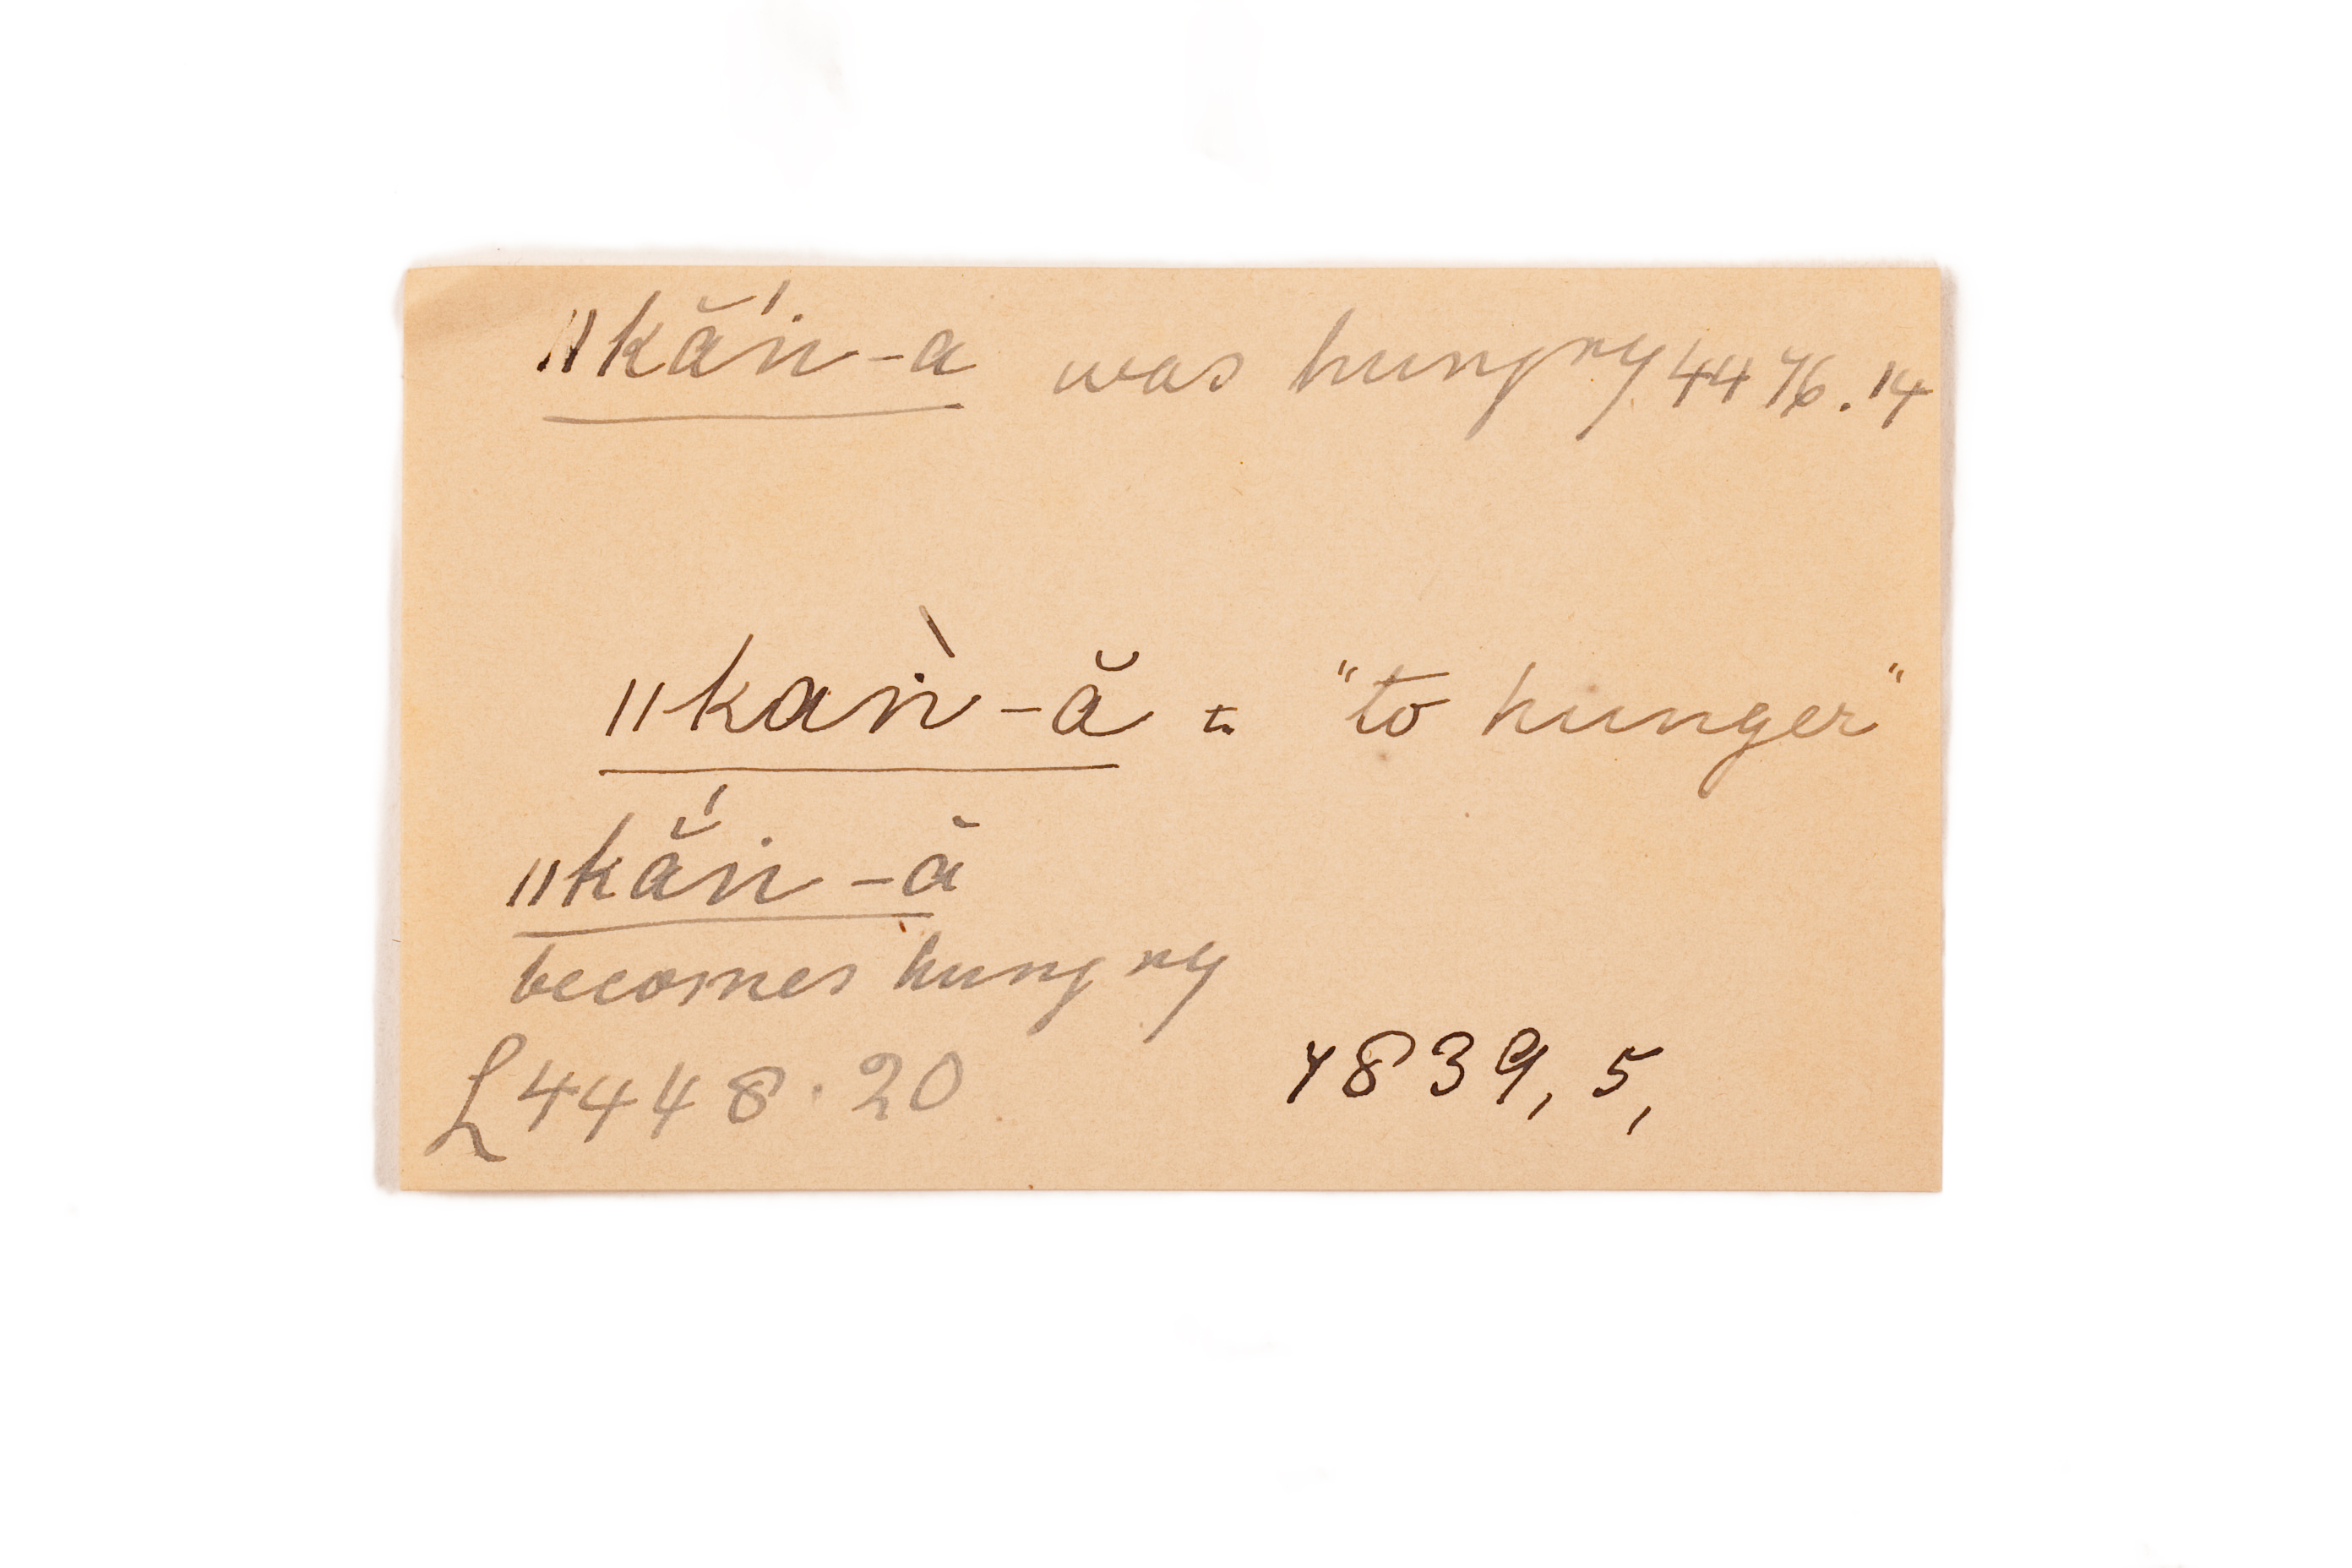 ǁkắṅ-a was hungry 4476.14
ǁkaṅ̀-ă = "to hunger"
ǁkắṅ-ă
becomes hungry
L 4448.20
4839, 5,